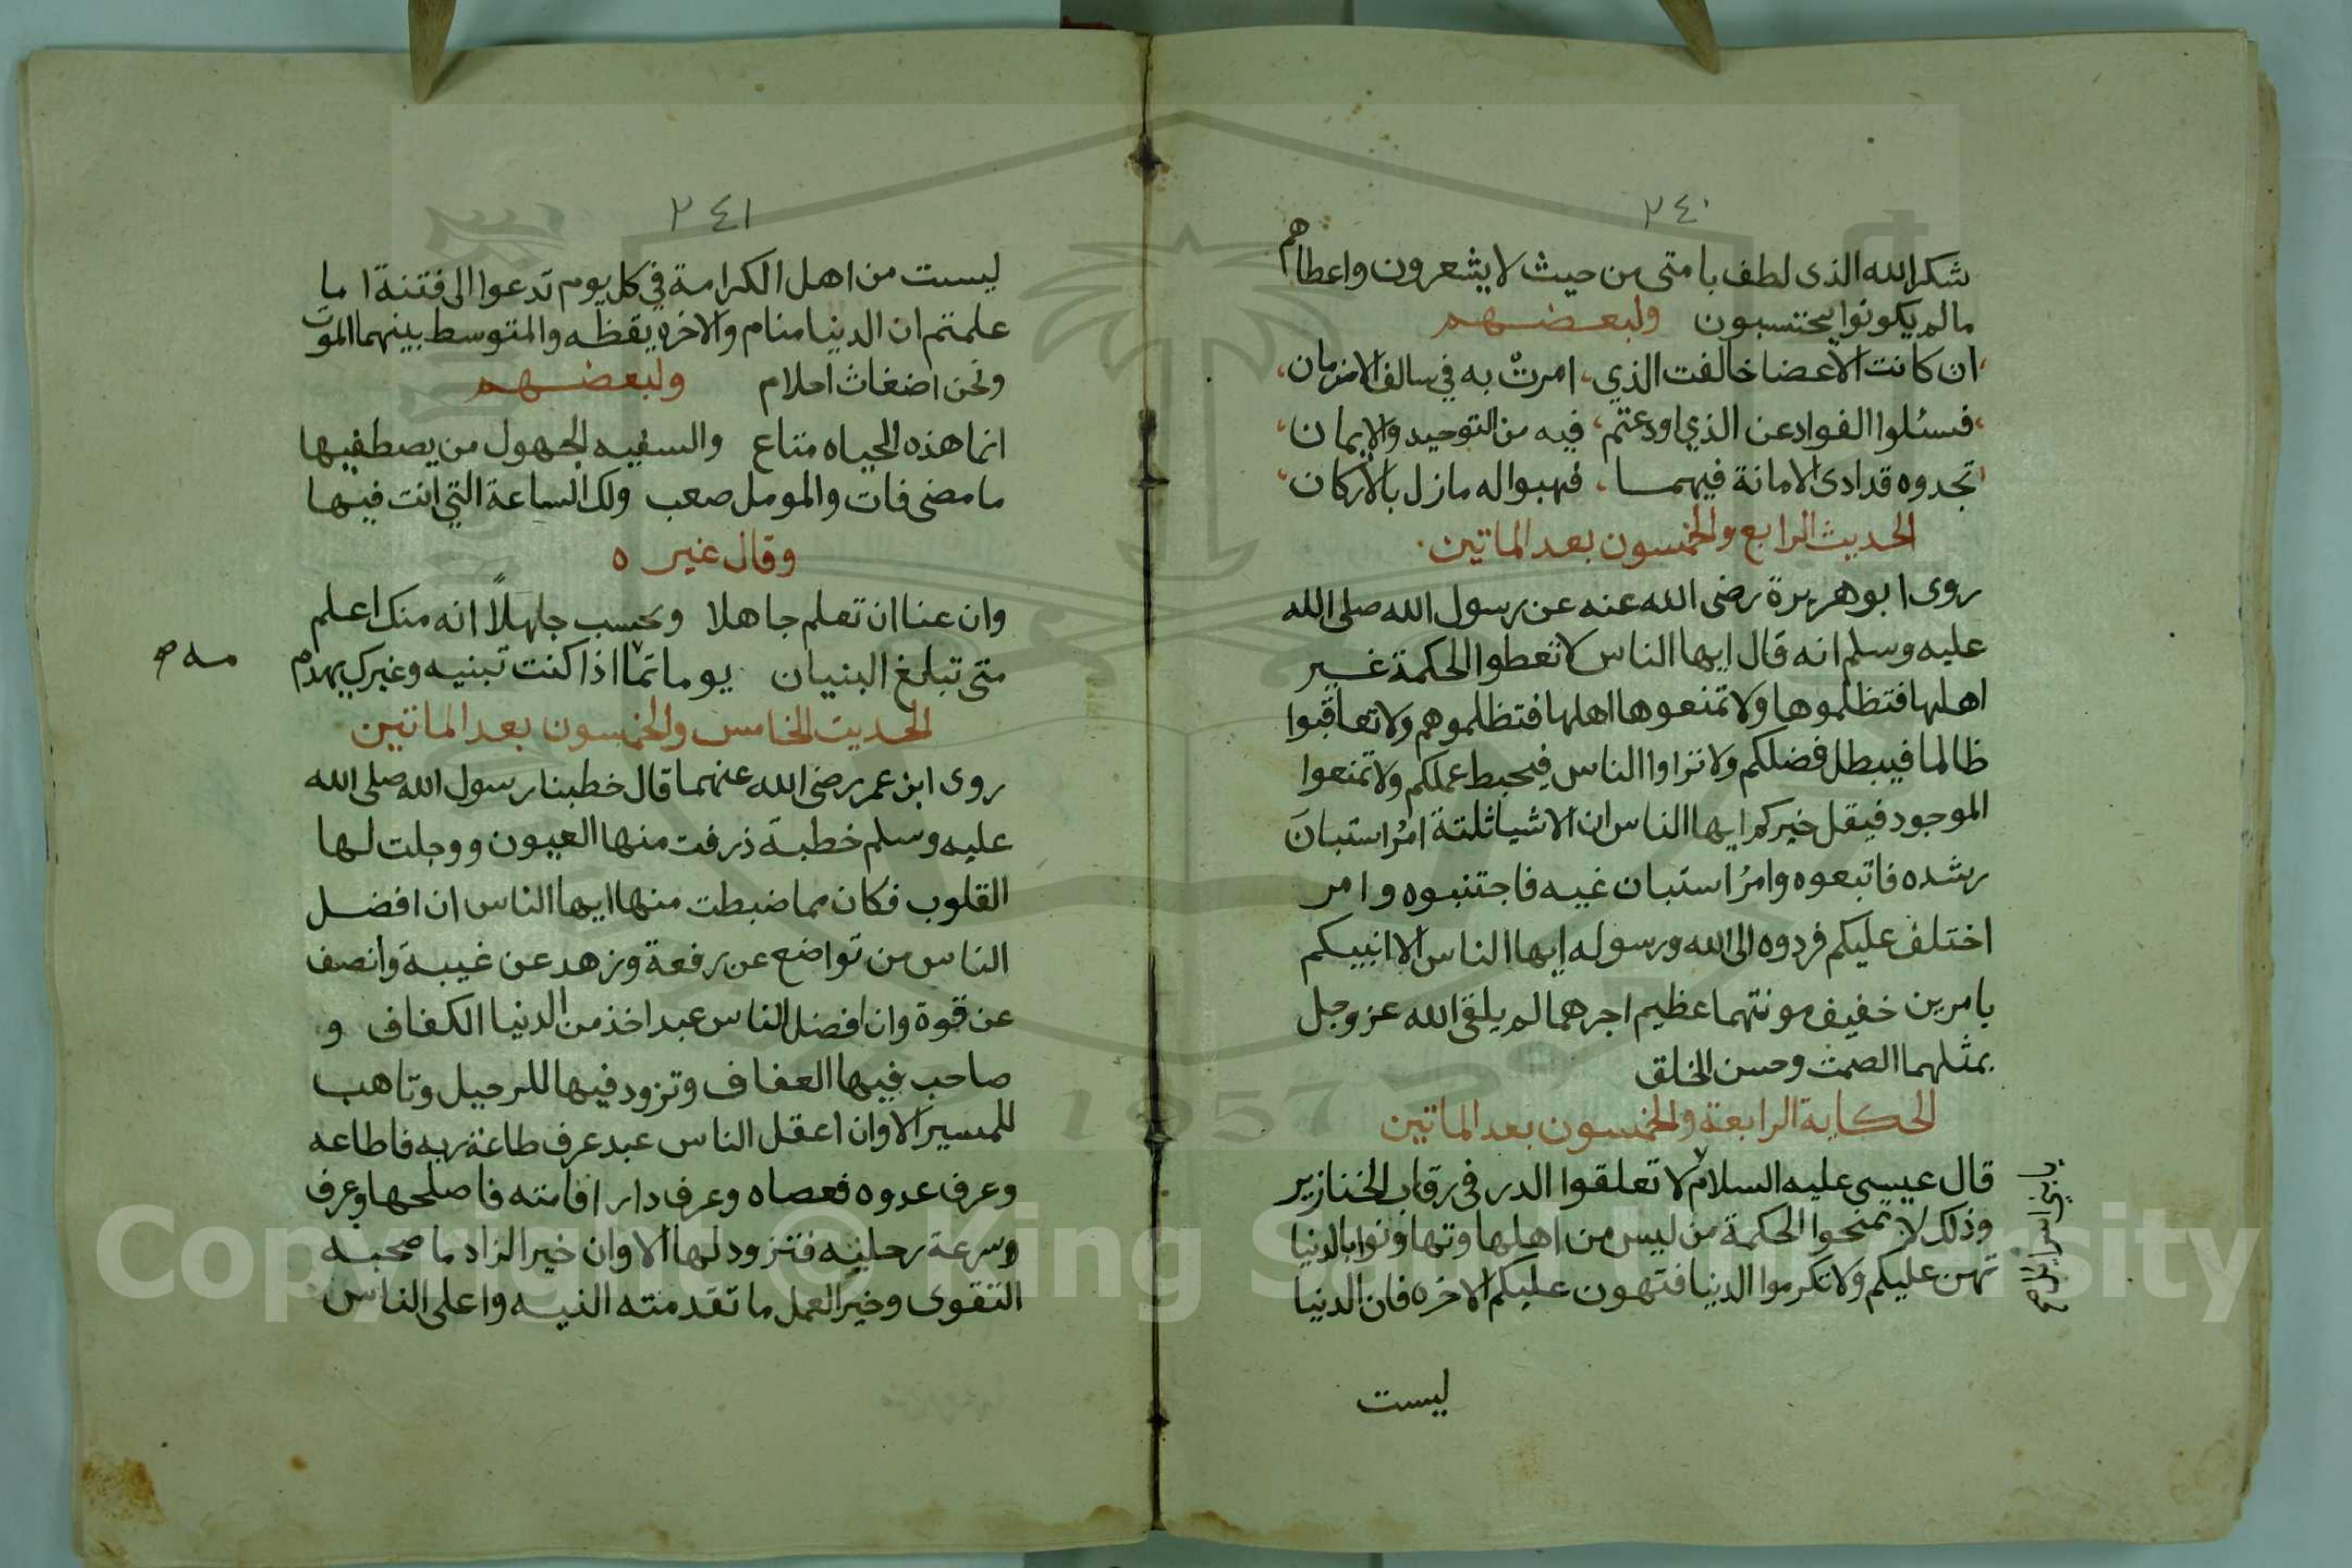 ٢٤٠
شكرا لله الذى لطف بامتى من حيث لا يشعرون واعطاهم
ما لم يكونوا يحتسبون ولبعضهم
ان كانت الاعضا خالفت الذي، امرت به في سالف الازمان،
فسئلوا الفواد عن الذي اودعتم، فيه من التوحيد والايمان،
تجدوه قد ادى الامانة فيهما، فهبوا له مازل بالأركان،
الحديث الرابع والخمسون بعد الماتين
روى ابو هريرة رضى الله عنه عن رسول الله صلى الله
عليه وسلم انه قال ايها الناس لا تعطوا الحكمة غير
اهلها فتظلموها ولا تمنعوها اهلها فتظلموهم ولا تعاقبوا
ظالما فيبطل فضلكم ولا تراوا الناس فيحبط عملكم ولا تمنعوا
الموجود فيقل خيركم ايها الناس ان الاشيا ثلثة امرٌ استبانَ
رشده فاتبعوه وامرُ استبان غيه فاجتنبوه وامر
اختلف عليكم فردوه الى الله ورسوله ايها الناس الا انبيكم
بامرين خفيف مونتهما عظيم اجرهما لم يلقى الله عز وجل
بمثلهما الصمت وحسن الخلق
الحكاية الرابعة والخمسون بعد الماتين
قال عيسى عليه السلام لا تعلقوا الدر فى رقاب الخنازير
وذلك لا تمنحوا الحكمة من ليس من اهلها وتهاونوا بالدنيا
تهن عليكم ولا تكرموا الدنيا فتهون عليكم الاخره فان الدنيا
يا بني اسرايل
ليست
٢٤١
ليست من اهل الكرامة في كل يوم تدعوا الى فتنة اما
علمتم ان الدنيا منام والاخره يقظه والمتوسط بينهما الموت
ونحن اضغاث احلام ولبعضهم
انما هذه الحياه متاع والسفيه الجهول من يصطفيها
ما مضى فات والمومل صعب ولك الساعة التي انت فيها
وقال غيره
وان عنا ان تعلم جاهلا وتحسب جاهلاً انه منك اعلم
متى تبلغ البنيان يوما تما اذا كنت تبنيه وغيرك يهدم
مه
الحديث الخامس والخمسون بعد الماتين
روى ابن عمر رضى الله عنهما قال خطبنا رسول الله صلى الله
عليه وسلم خطبة ذرفت منها العيون ووجلت لها
القلوب فكان مما ضبطت منها ايها الناس ان افضل
الناس من تواضع عن رفعة وزهد عن غيبة وانصف
عن قوة وان افضل الناس عبد اخذ من الدنيا الكفاف و
صاحب فيها العفاف وتزود فيها للرحيل وتاهب
للمسير الا وان اعقل الناس عبد عرف طاعة ربه فاطاعه
وعرف عدوه فعصاه وعرف دار اقامته فاصلحها وعرف
وسرعة رحليه فتزود لها الا وان خير الزاد ما صحبه
التقوى وخير العمل ما تقدمته النيه واعلى الناس
Copyright © King Saud University
1957